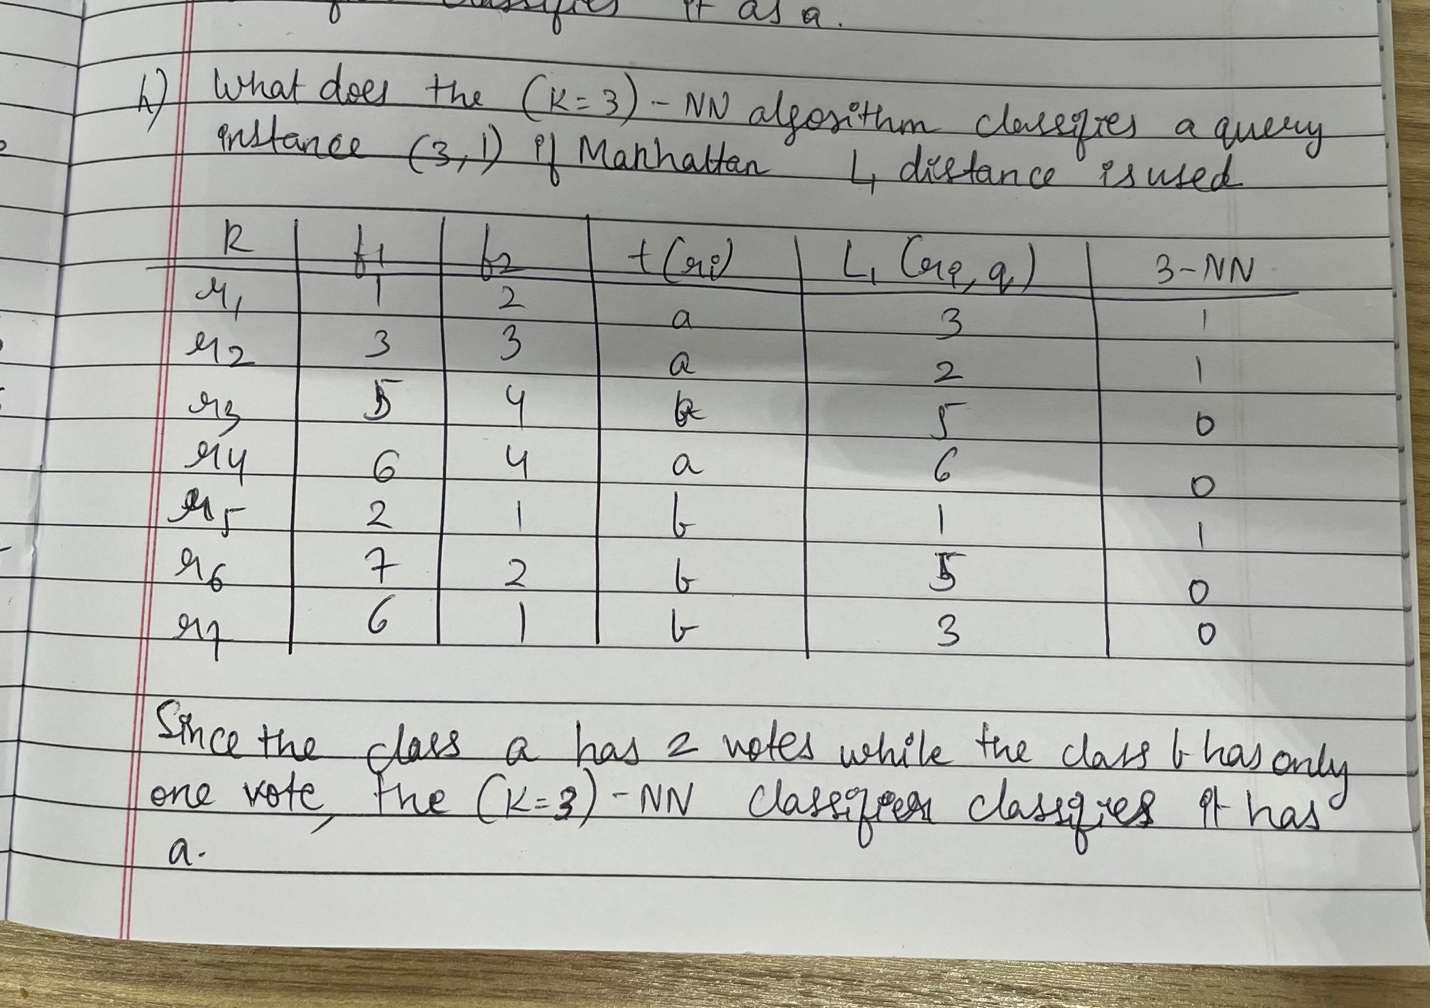 classifies it as a.
h) What does the (K=3)-NN algorithm classifies a query
instance (3,1) if Manhattan L1 distance is used
R f1 f2 t(ri) L1(ri,q) 3-NN
r1 1 2 a 3 1
r2 3 3 a 2 1
r3 5 4 5 0
r4 6 4 a 6 0
r5 2 1 b 1 1
r6 7 2 b 5 0
r7 6 1 b 3 0
Since the class a has 2 votes while the class b has only
one vote, the (K=3)-NN classifier classifies it has
a.